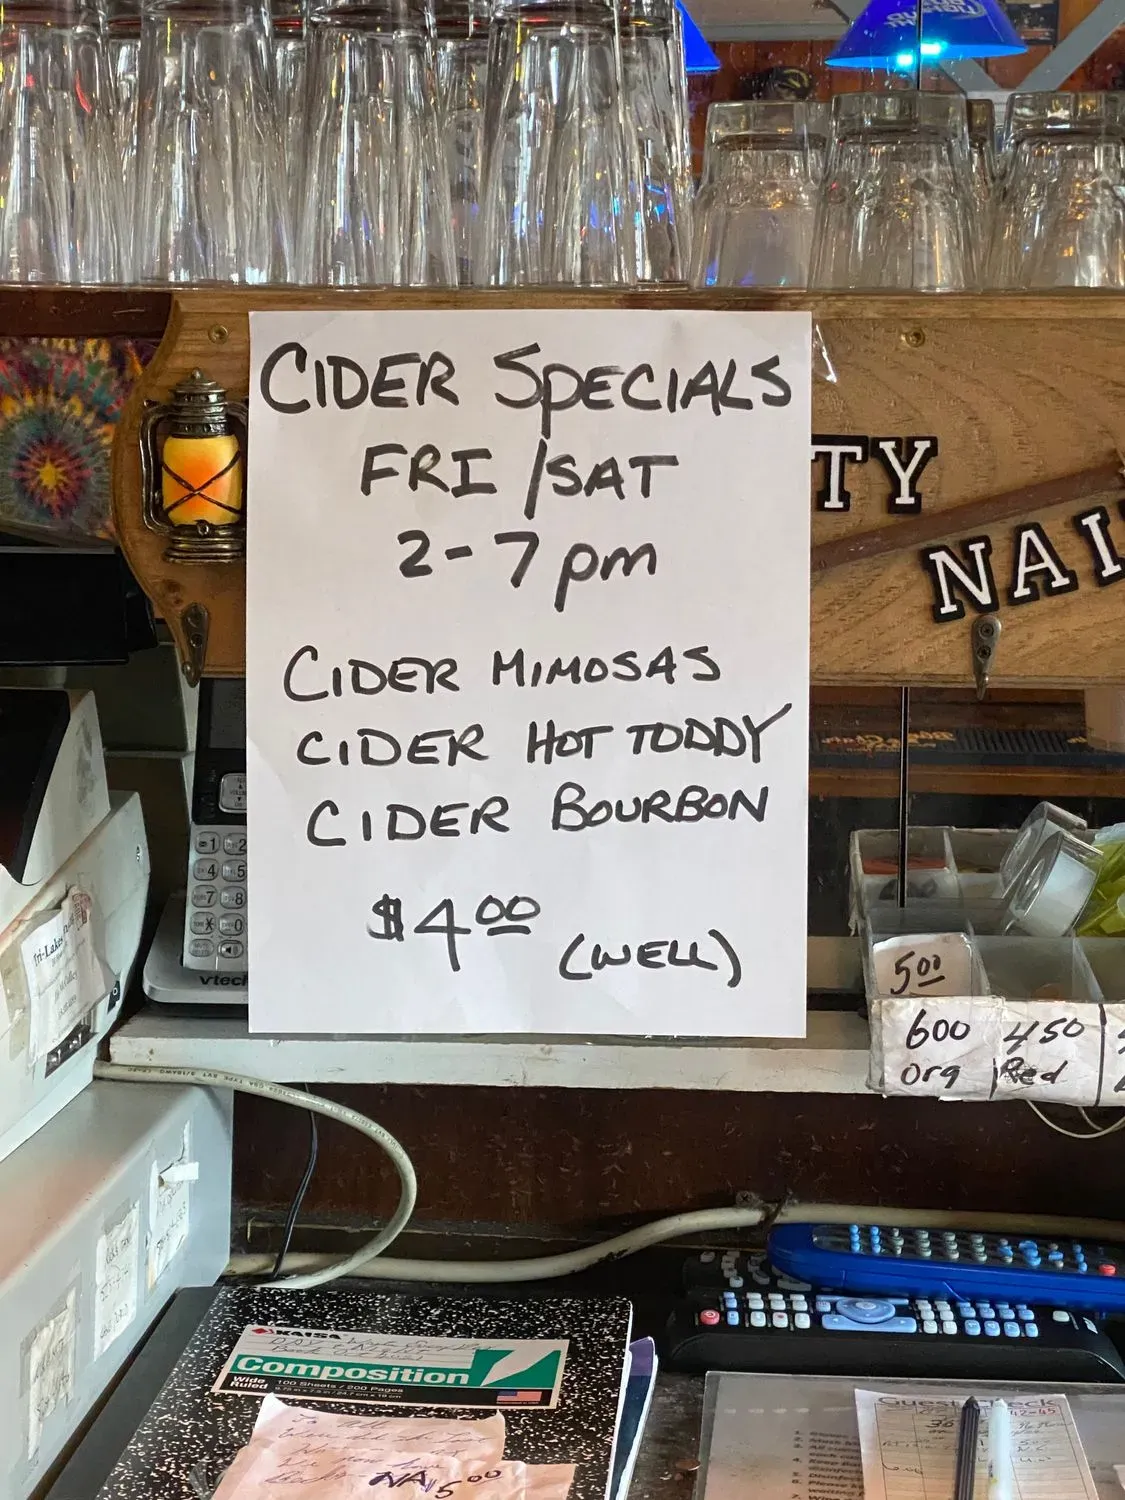 CIDER SPECIALS
FRI/SAT
2-7pm
CIDER MIMOSAS
CIDER HOT TODDY
CIDER BOURBON
$4.00
(WELL)
TY
NAI
1 2
4 5
7 8
0
vtech
Tri-Lakes
5.00
600
org
450
Red
KAISA
Composition
Wide
Ruled
100 Sheets / 200 Pages
NA 5.00
Guest Check